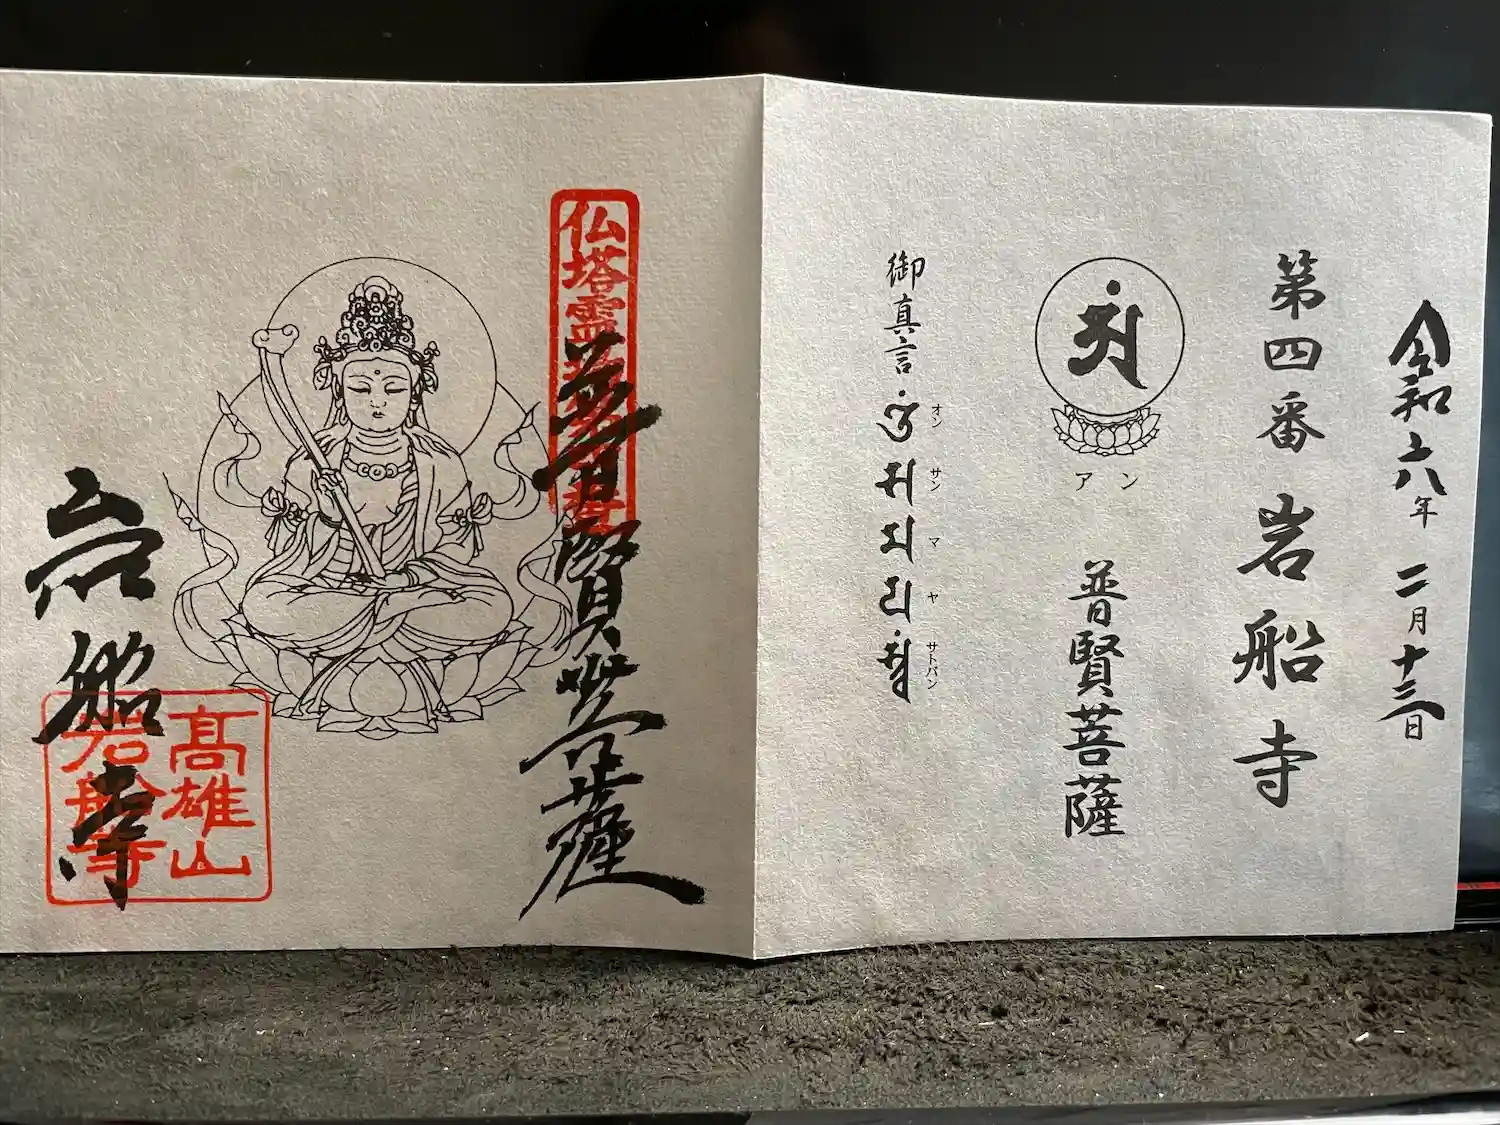 令和六年 二月十三日
第四番 岩船寺
アン
普賢菩薩
御真言
オン サン マ ヤ サトバン
普賢菩薩
仏塔霊
岩船寺
高雄山
岩船寺